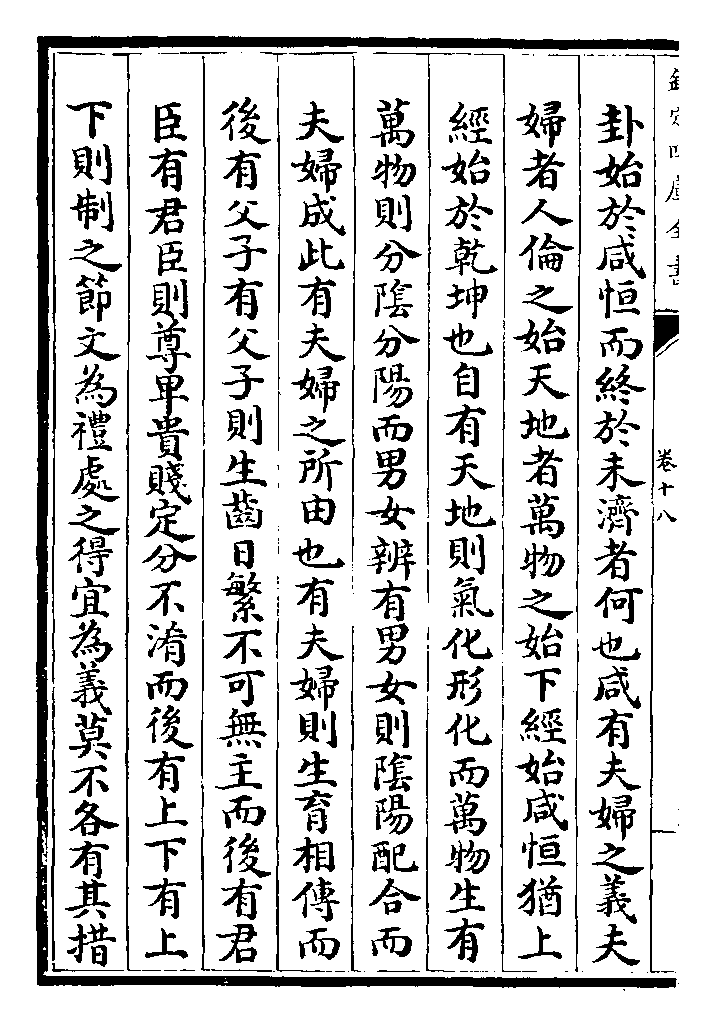 欽定四庫全書
卷十八
卦始於咸恒而終於未濟者何也咸有夫婦之義夫
婦者人倫之始天地者萬物之始下經始咸恒猶上
經始於乾坤也自有天地則氣化形化而萬物生有
萬物則分陰分陽而男女辨有男女則陰陽配合而
夫婦成此有夫婦之所由也有夫婦則生育相傳而
後有父子有父子則生齒日繁不可無主而後有君
臣有君臣則尊卑貴賤定分不淆而後有上下有上
下則制之節文為禮處之得宜為義莫不各有其措